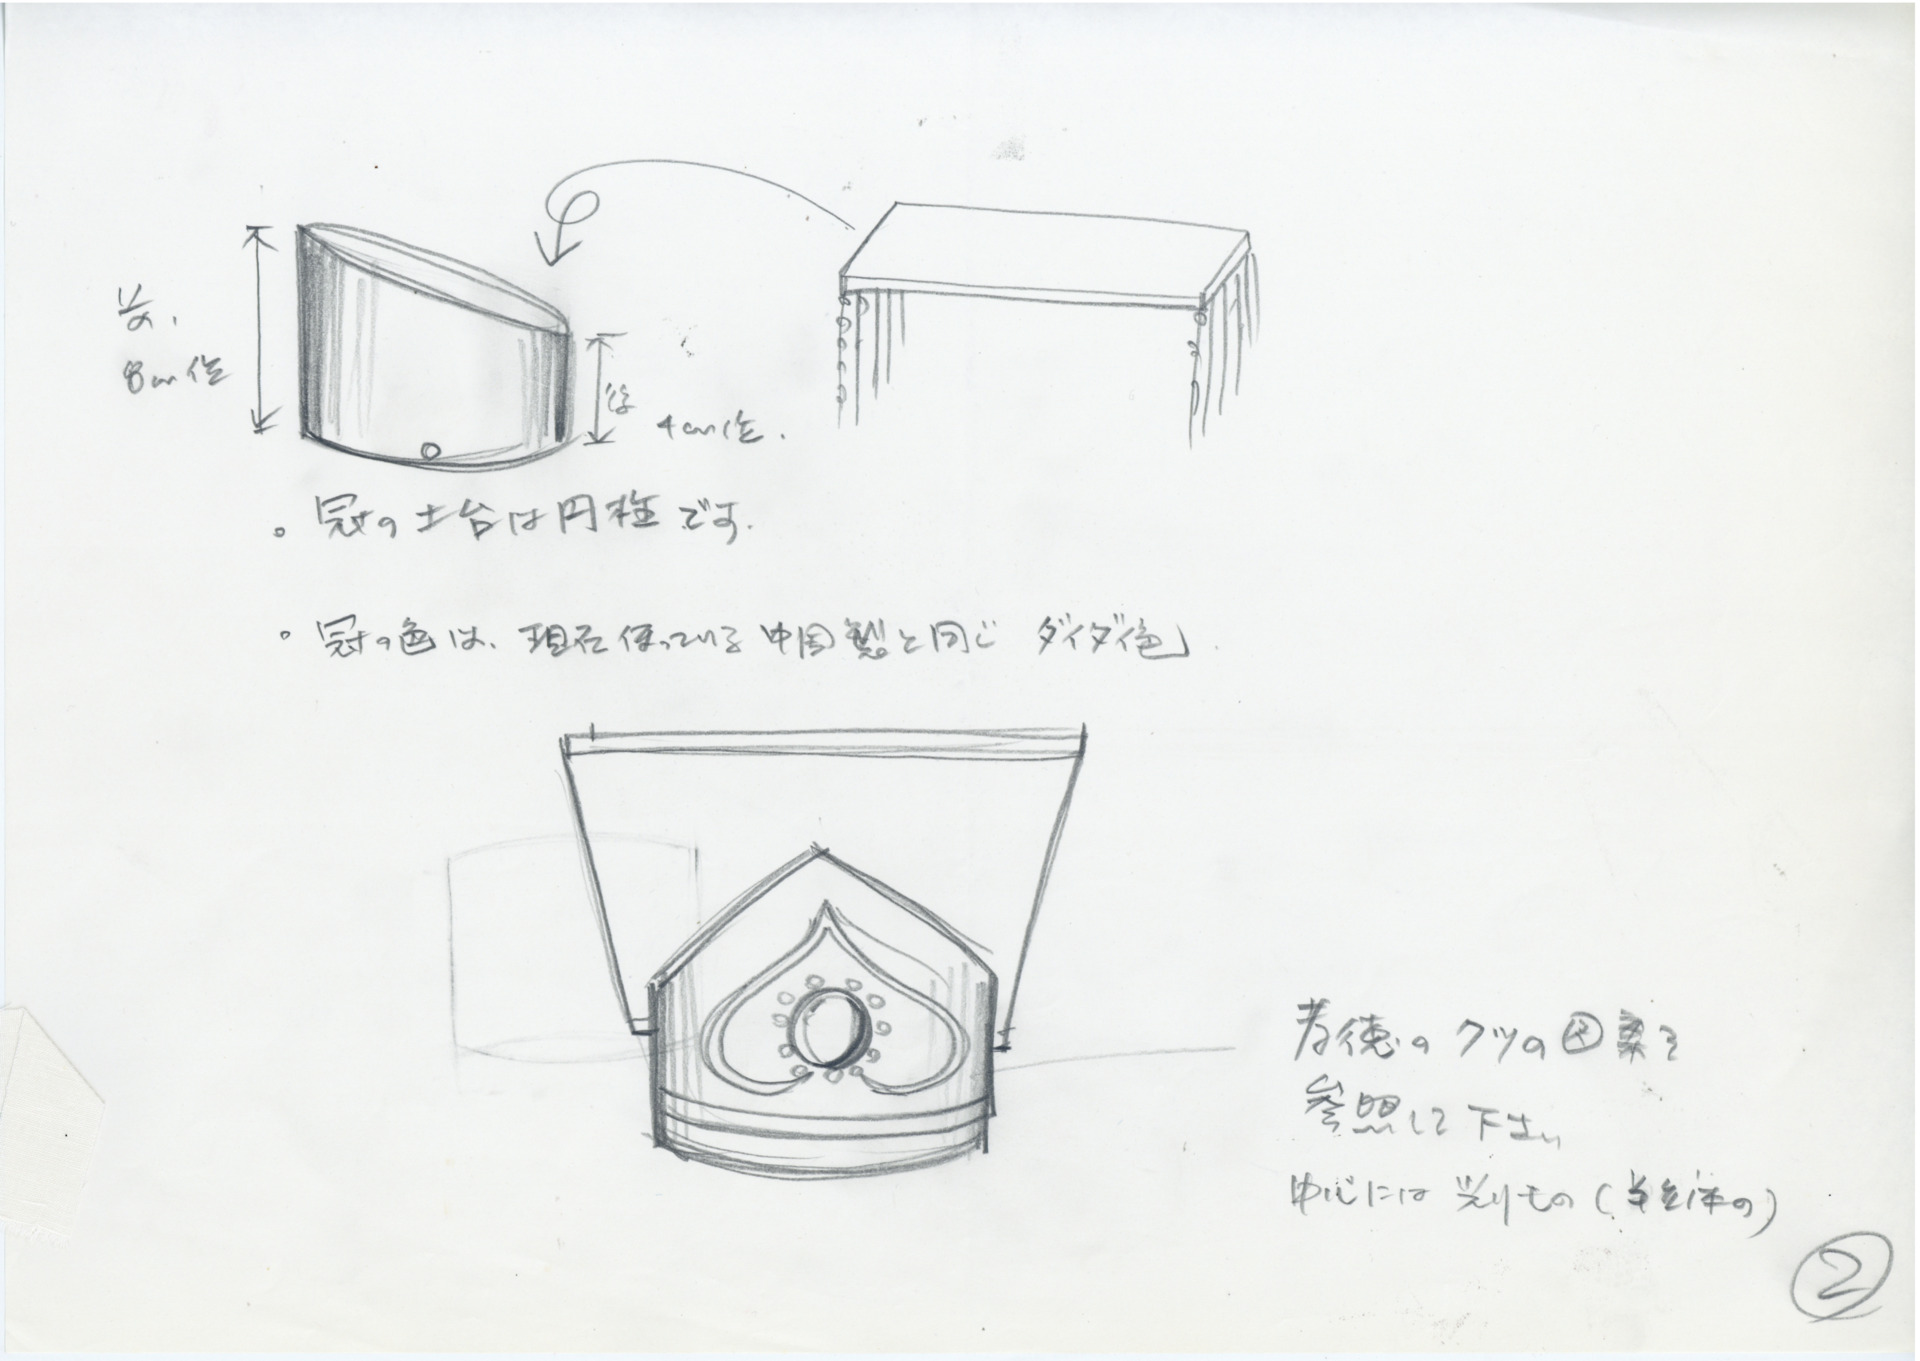 前.
8cm位
後
4cm位.
。冠の土台は円柱です.
。冠の色は、現在使っている中国製と同じ ダイダイ色」.
孝徳のクツの図案を
参照して下さい
中心には光りもの(半立体の)
②